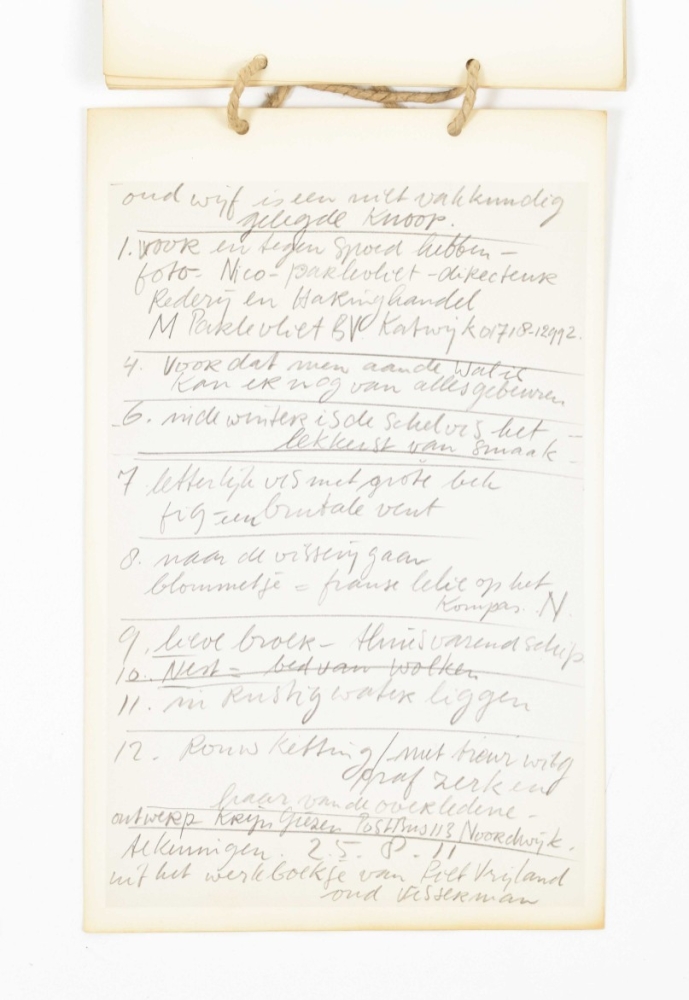 oud wijf is een niet vakkundig
gelegde knoop.
1. voor en tegen spoed hebben -
foto - Nico - parlevliet - direkteur
Rederij en Haringhandel
M Parlevliet BV Katwijk 01718-12992.
4. Voordat men aan de wal is
kan er nog van alles gebeuren
6. in de winter is de schelvis het
lekkerst van smaak
7 letterlijk vis met grote bek
fig - een brutale vent
8. naar de visserij gaan
blommetje = franse lelie op het
Kompas. N
9. lieve broek - thuisvarend schip
10. Nest = bed van wolken
11. in rustig water liggen
12. Rouw ketting / met treurwilg
graf zerk en
haar van de overledene -
ontwerp Krijn Giezen Postbus 113 Noordwijk.
tekeningen. 2.5. 8. 11
uit het werkboekje van Piet Vrijland
oud visserman